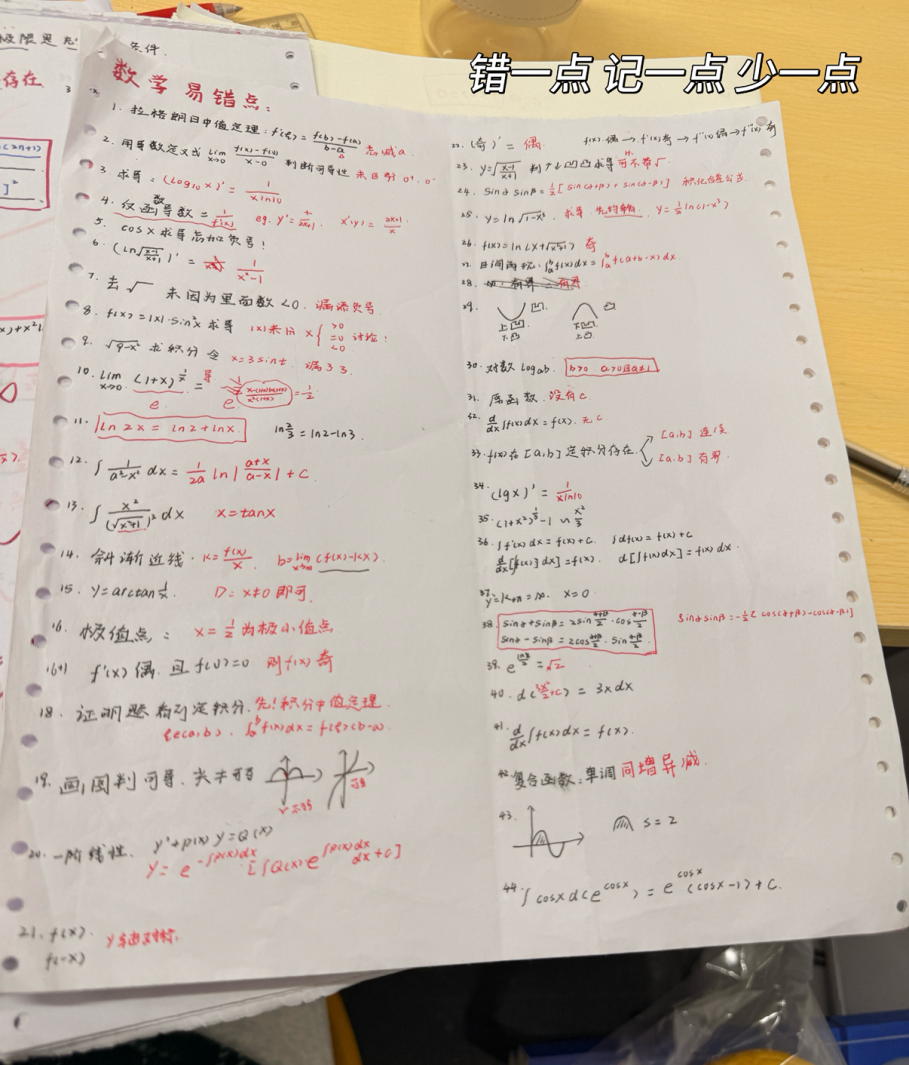 错一点 记一点 少一点
极限思
条件.
存在
数学易错点:
1. 拉格朗日中值定理: f'(ξ) = (f(b)-f(a))/(b-a) 忘减a.
2. 用导数定义或 lim x→0 (f(x)-f(0))/(x-0) 判断可导性 未区分 0⁺, 0⁻
3. 求导: (log₁₀x)' = 1/(xln10)
4. 反函数导数 = 1/f'(x) eg. y' = x/(2x+1) x'(y) = (2x+1)/x
5. cosx求导忘加负号!
6. (ln√((x-1)/(x+1)))' = 1/(x²-1)
7. 去√ 未因为里面数<0. 漏添负号.
8. f(x)=|x|·sin²x 求导 |x|未分 x { >0 =0 <0 讨论!
9. √(9-x²) 求积分 令 x=3sint. 漏3 3.
10. lim x→0 (1+x)^(1/x) = e
11. ln2x = ln2+lnx ln 2/3 = ln2-ln3.
12. ∫ 1/(a²-x²) dx = 1/(2a) ln|(a+x)/(a-x)|+C.
13. ∫ x²/(√(x²+1))² dx x=tanx
14. 斜渐近线. k= f(x)/x. b=lim x→∞ (f(x)-kx).
15. y=arctan 1/x. D: x≠0 即可.
16. 极值点: x=1/2 为极小值点
f'(x) 偶. 且 f(0)=0 则f(x) 奇
18. 证明题看到定积分. 先!积分中值定理
ξ∈(a,b), ∫ₐᵇ f(x)dx = f(ξ)(b-a).
19. 画图判可导.
20. 一阶线性. y'+p(x)y=Q(x)
y= e^(-∫p(x)dx) [∫Q(x)e^(∫p(x)dx) dx+C]
21. f(x). y轴对称.
f(-x)
22. (奇)' = 偶. f(x)偶→f'(x)奇→f''(x)偶→f'''(x)奇
23. y=√((x-1)/(x+1)) 判↑↓凹凸求导可不带√.
24. sinα sinβ = 1/2[sin(α+β)+sin(α-β)] 积化和差公式
25. y=ln√(1-x²). 求导. y=1/2 ln(1-x²)
26. f(x)=ln(x+√(x²+1)) 奇
27. 区间再现: ∫ₐᵇ f(x)dx=∫ₐᵇ f(a+b-x)dx.
28.
29. 上凹. 下凸. 下凹. 上凸.
30. 对数 logab. b>0 a>0且a≠1
31. 原函数. 没有C.
32. d/dx ∫f(x)dx=f(x). 无C
33. f(x)在[a,b]定积分存在. [a,b] 连续 [a,b] 有界.
34. (lgx)' = 1/(xln10)
35. (1+x²)^(1/3) -1 ∽ x²/3
36. ∫f'(x)dx=f(x)+C. ∫df(x)=f(x)+C
d/dx[∫f(x)dx]=f(x). d[∫f(x)dx]=f(x)dx.
37. x=0.
38. sinα+sinβ=2sin (α+β)/2 ·cos (α-β)/2
sinα-sinβ=2cos (α+β)/2 · sin (α-β)/2.
sinαsinβ=-1/2[cos(α+β)-cos(α-β)]
39. e^(ln2/2) = √2
40. d(3x²/2+C) = 3xdx
41. d/dx ∫f(x)dx=f(x).
42. 复合函数: 单调 同增异减.
43. S=2
44. ∫cosxd(e^cosx) = e^cosx (cosx-1)+C.